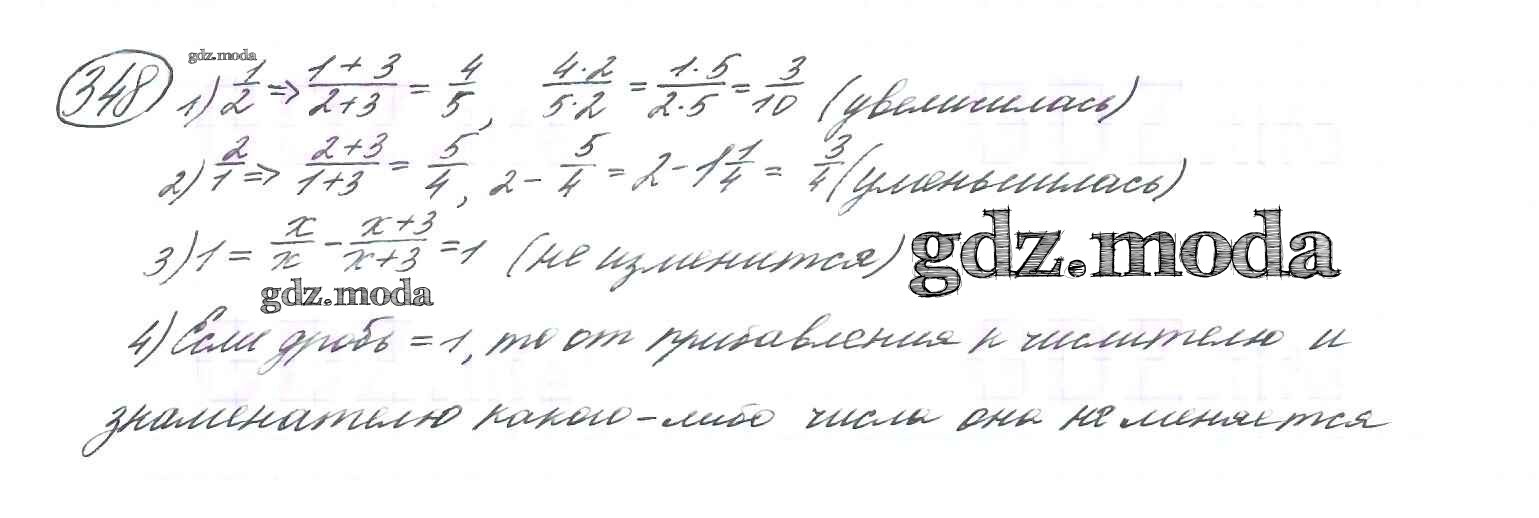 gdz.moda
348 1) 1/2 => (1+3)/(2+3) = 4/5, (4·2)/(5·2) = (1·5)/(2·5) = 3/10 (увеличилась)
2) 2/1 => (2+3)/(1+3) = 5/4, 2 - 5/4 = 2 - 1 1/4 = 3/4 (уменьшилась)
3) 1 = x/x - (x+3)/(x+3) = 1 (не изменится) gdz.moda
gdz.moda
4) Если дробь = 1, то от прибавления к числителю и
знаменателю какого-либо числа она не меняется